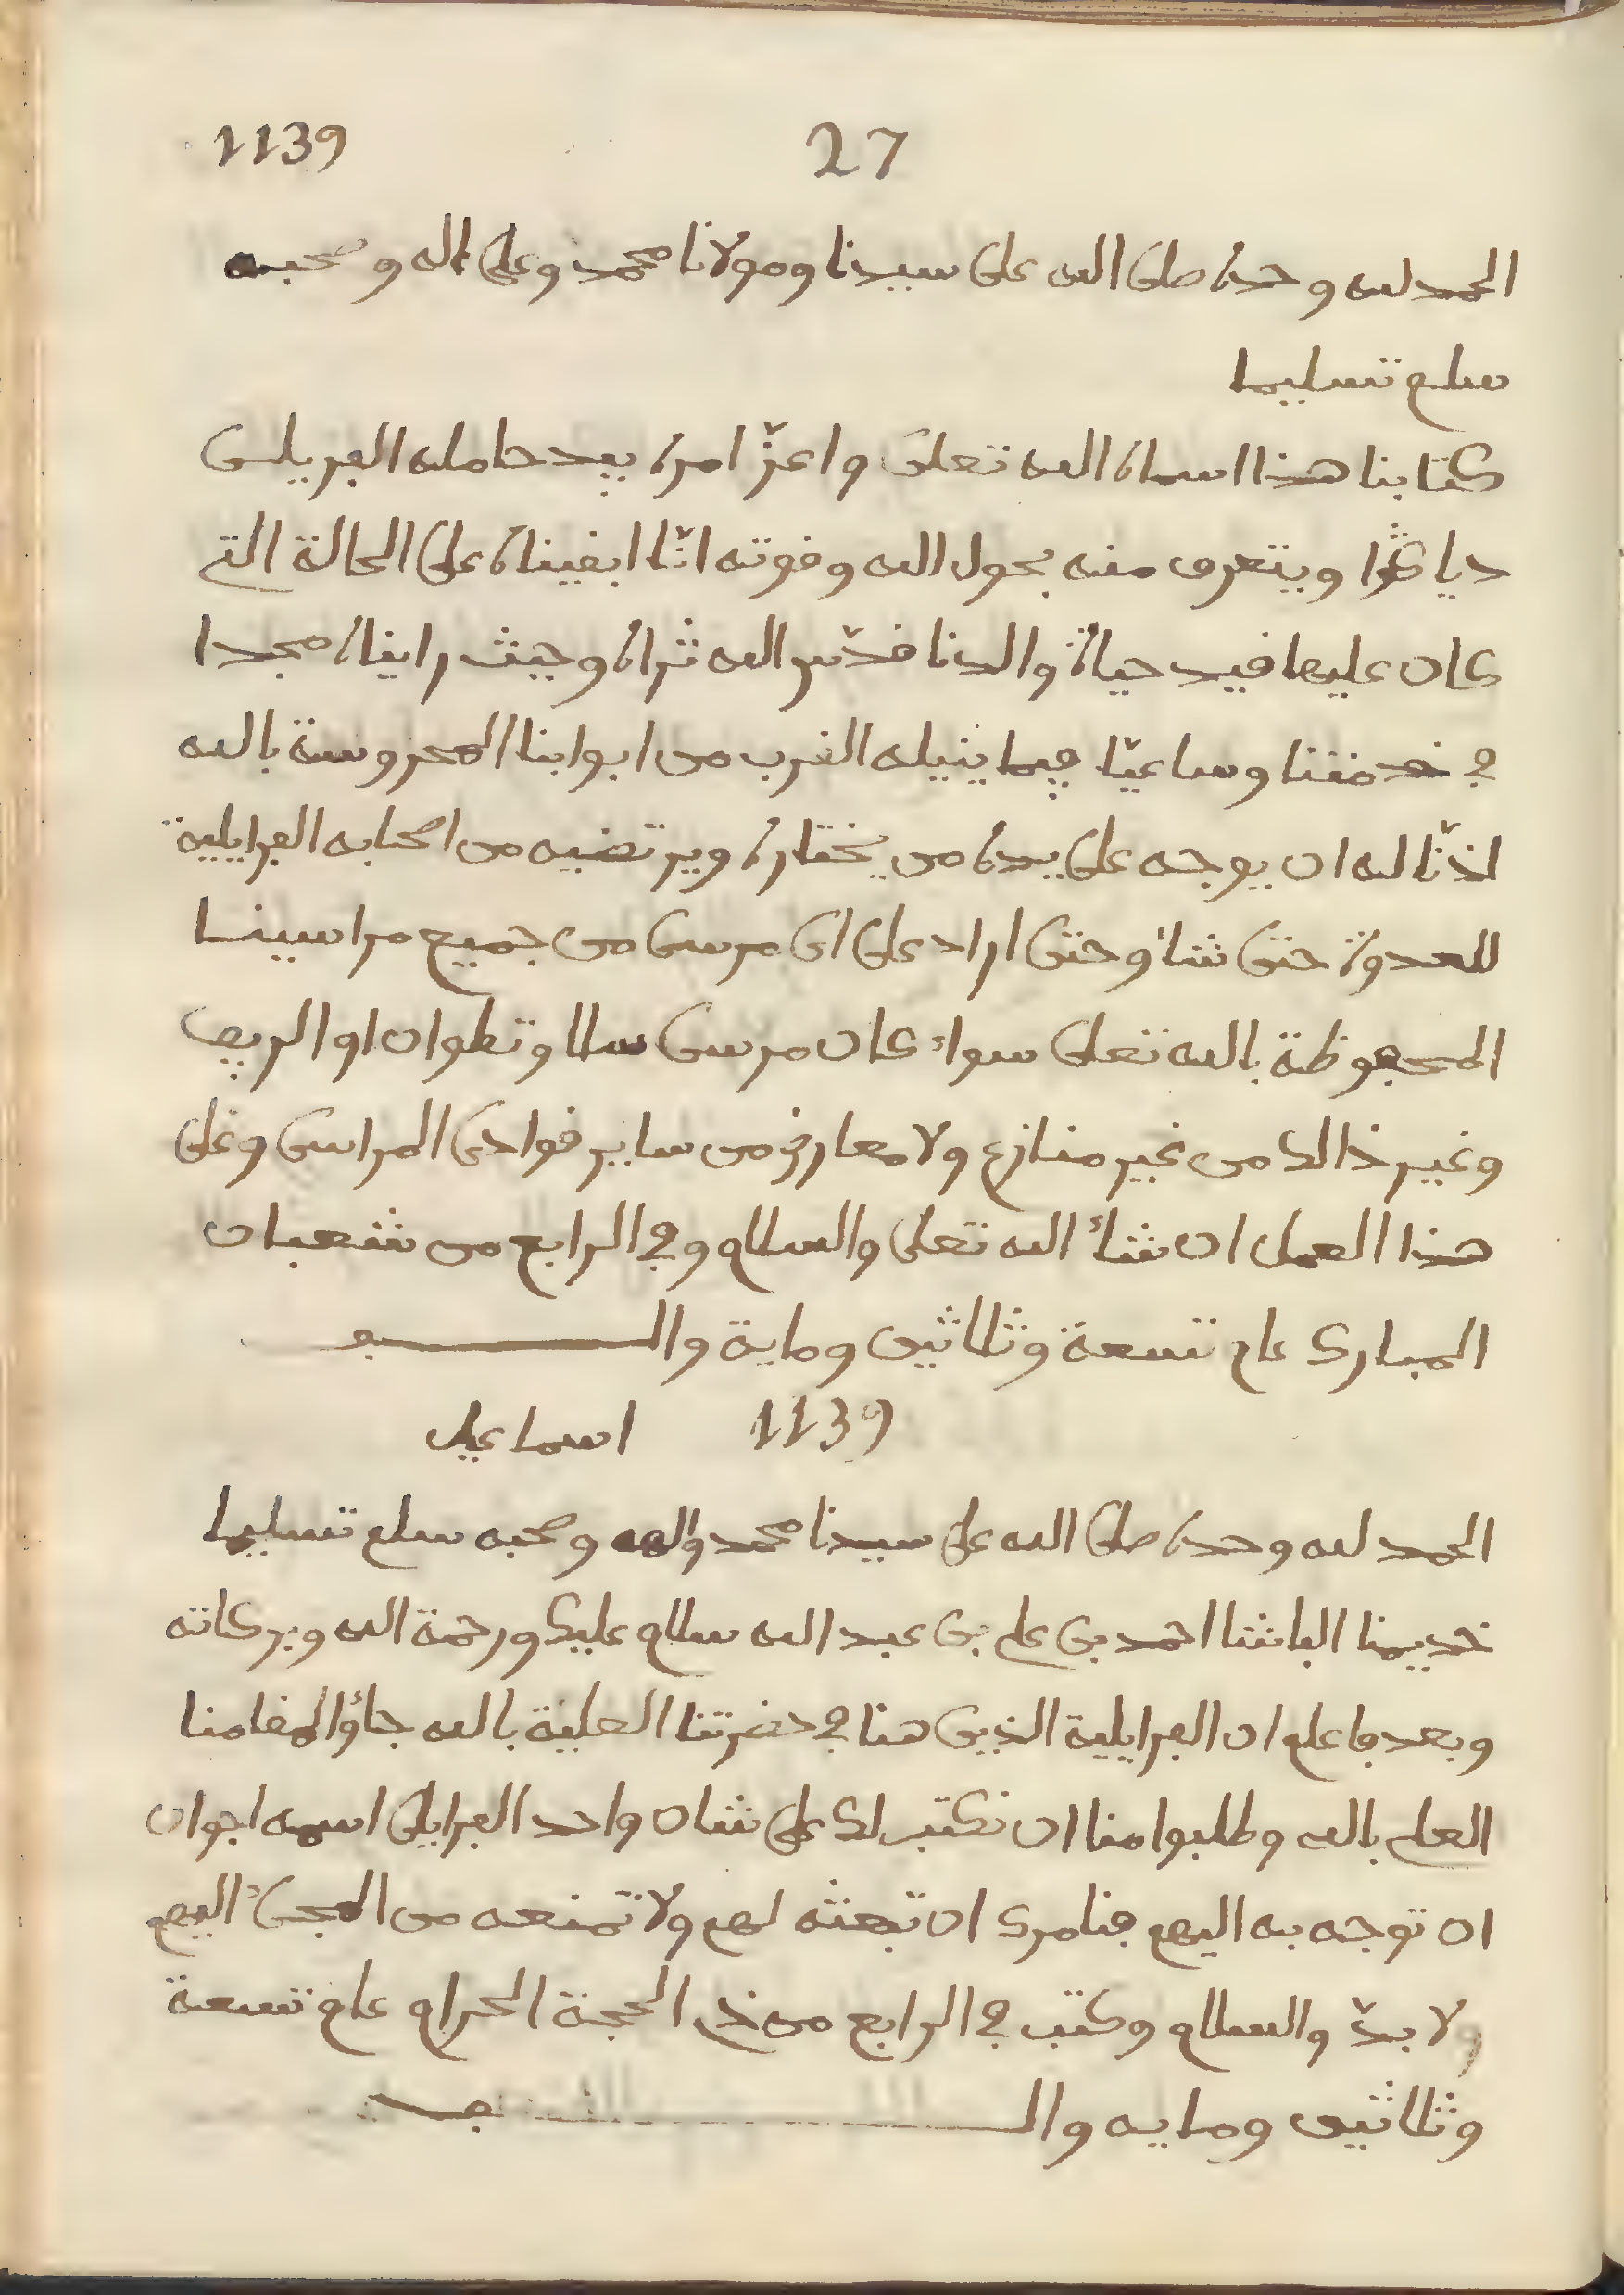 1139 27
الحمد لله وحده صلى الله على سيدنا ومولانا محمد وعلى اله وصحبه
سلم تسليما
كتابنا هذا اسماه الله تعلى واعزّ امره بيد حامله الفريلى
دياكوا ويتعرف منه بحول الله وقوته انّا ابقيناه على الحالة التي
كان عليها قيد حياة والدنا قدّس الله ثراه وحيث رايناه مجدا
في خدمتنا وساعيّا فيما ينيله القرب من ابوابنا المحروسة بالله
اذنّا له ان يوجه على يده من يختاره ويرتضيه من اصحابه الفرايلية
للعدوة حتى شاء وحتى اراد على اى مرسى من جميع مراسينا
المحفوظة بالله تعلى سواء كان مرسى سلا وتطوان او الريف
وغير ذالك من غير منازع ولا معارض من ساير قوادى المراسى وعلى
هذا العمل ان شاء الله تعلى والسلام وفي الرابع من شعبان
المبارك عام تسعة وثلاثين وماية والف
1139 اسماعيل
الحمد لله وحده صلى الله على سيدنا محمد واله وصحبه سلم تسليما
خديمنا الباشا احمد بن علي بن عبد الله سلام عليك ورحمة الله وبركاته
وبعد فاعلم ان الفرايلية الذين هنا في حضرتنا العلية بالله جاؤا لمقامنا
العلي بالله وطلبوا منا ان نكتب لك على شان واحد الفرايلى اسمه اجوان
ان توجه به اليهم فنامرك ان تبعثه لهم ولا تمنعه من المجىء اليهم
ولا بدّ والسلام وكتب في الرابع من ذي الحجة الحرام عام تسعة
وثلاثين ومايه والف